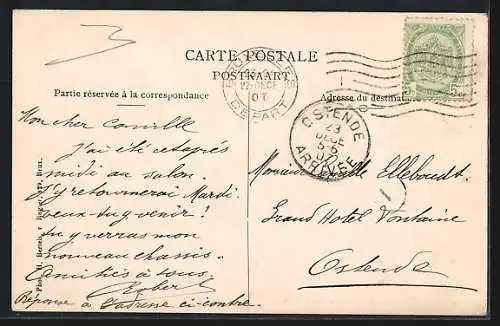 CARTE POSTALE
POSTKAART
Partie réservée à la correspondance
Adresse du destinat
22 DECE
07
DEPART
OSTENDE
23
DECE
5-6
07
ARRIVEE
5 5
Mon cher Camille
J'ai été cet après
midi au salon.
J'y retournerai Mardi.
veux-tu y venir !
tu y verras mon
nouveau chassis.
Amitiés à tous
Robert
Réponse à l'adresse ci-contre.
Monsieur Camille Elleboudt
Grand Hotel Fontaine
Ostende
1
Phot. H. Bertels, Brux.